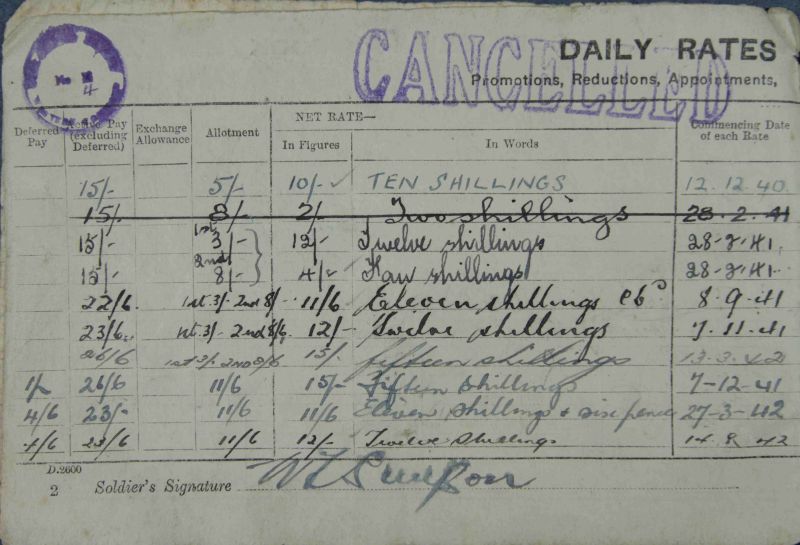 CANCELLED
DAILY RATES
Promotions, Reductions, Appointments,
No
4
Deferred Pay Pay (excluding Deferred) Exchange Allowance Allotment NET RATE— In Figures In Words Commencing Date of each Rate
15/- 5/- 10/- TEN SHILLINGS 12.12.40.
15/- 8/- 2/- Two shillings 28.2.41
15/- 1st 3/- 12/- Twelve shillings 28-2-41.
15/- 2nd 8/- 4/- shillings 28-2-41.
22/6 1st 3/- 2nd 8/- 11/6 Eleven shillings 6D 8.9.41
23/6 1st 3/- 2nd 8/6 12/- Twelve shillings 7.11.41
26/6 1st 3/- 2ND 8/6 15/- fifteen shillings 13.3.42
1/- 26/6 11/6 15/- Fifteen Shillings 7-12-41
4/6 23/- 11/6 11/6 Eleven Shillings & six pence 27-3-42
4/6 23/6 11/6 12/- Twelve Shillings 14 8 42
D.2600
2 Soldier's Signature